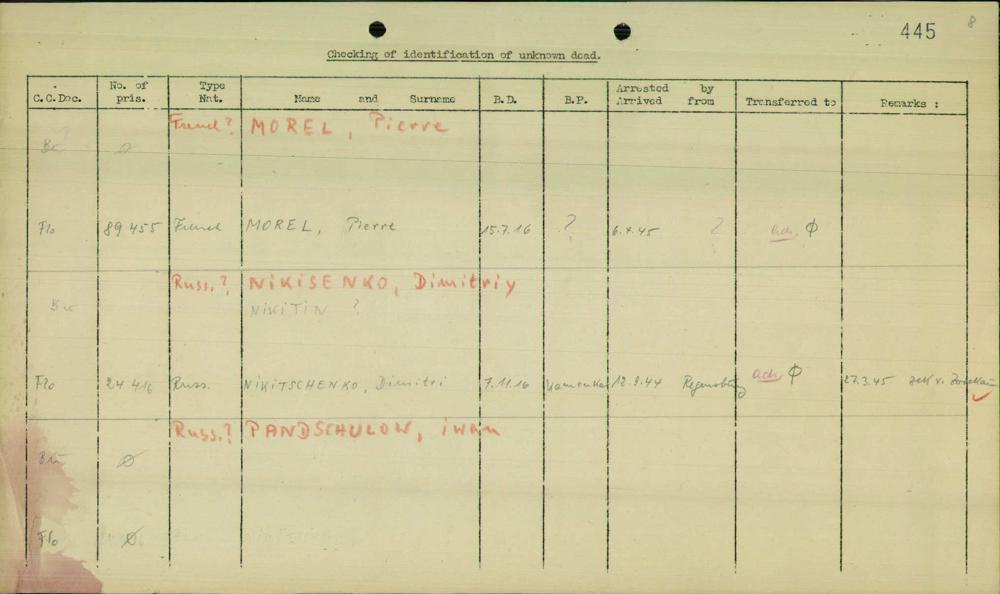 445 8
Checking of identification of unknown dead.
C.C.Doc. No. of pris. Type Nat. Name and Surname B.D. B.P. Arrested by Arrived from Transferred to Remarks :
French? MOREL, Pierre
Bu ∅
Flo 89 455 French MOREL, Pierre 15.7.16 ? 6.4.45 ? ∅
Russ.? NIKISENKO, Dimitriy
Bu NIKITIN ?
Flo 24 416 Russ. NIKITSCHENKO, Dimitri 7.11.16 Kamenka 12.9.44 Regensburg ∅ 27.3.45
Russ.? PANDSCHULOW, iwan
Bu ∅
Flo ∅